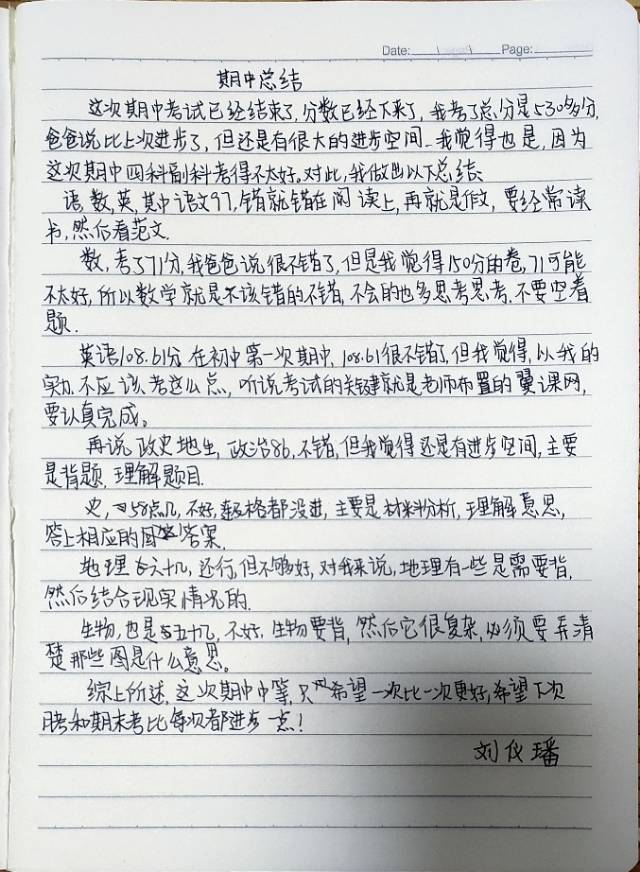 Date: \ \ Page:
期中总结
这次期中考试已经结束了,分数已经下来了,我考了总分是530多分,
爸爸说比上次进步了,但还是有很大的进步空间.我觉得也是,因为
这次期中四科副科考得不太好。对此,我做出以下总结:
语,数,英,其中语文97,错就错在阅读上,再就是作文,要经常读
书,然后看范文.
数,考了71分,我爸爸说很不错了,但是我觉得150分的卷,71可能
不太好,所以数学就是不该错的不错,不会的也多思考思考,不要空着
题.
英语108.61分,在初中第一次期中,108.61很不错了,但我觉得,以我的
实力,不应该考这么点,听说考试的关键就是老师布置的翼课网,
要认真完成。
再说政史地生,政治86,不错,但我觉得还是有进步空间,主要
是背题,理解题目.
史,58点几,不好,连及格都没进,主要是材料分析,理解意思,
答上相应的答案.
地理六十几,还行,但不够好,对我来说,地理有一些是需要背,
然后结合现实情况的.
生物,也是五十几,不好,生物要背,然后它很复杂,必须要弄清
楚那些图是什么意思。
综上所述,这次期中中等,只希望一次比一次更好,希望下次
月考和期末考比每次都进步一点!
刘仪璠